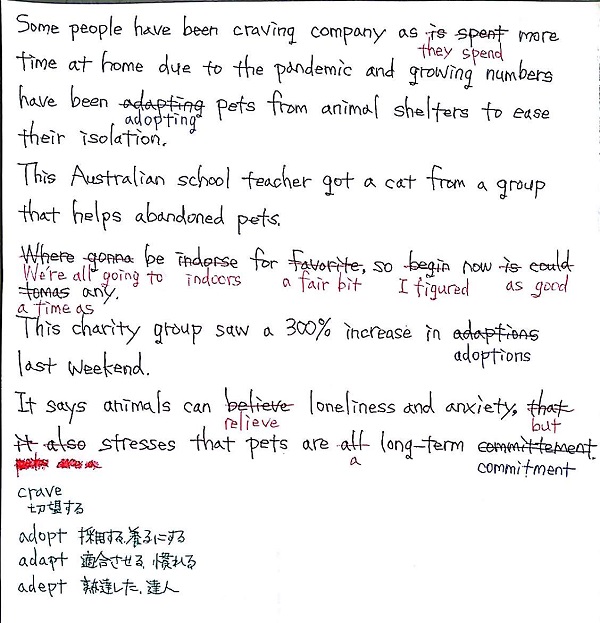 Some people have been craving company as is spent more
they spend
time at home due to the pandemic and growing numbers
have been adapting pets from animal shelters to ease
adopting
their isolation.
This Australian school teacher got a cat from a group
that helps abandoned pets.
Where gonna be indorse for favorite, so begin now is could
We're all going to indoors a fair bit I figured as good
tomas any.
a time as
This charity group saw a 300% increase in adaptions
adoptions
last weekend.
It says animals can believe loneliness and anxiety, that
relieve but
it also stresses that pets are all long-term committement.
a commitment
crave
切望する
adopt 採用する, 養子にする
adapt 適合させる, 慣れる
adept 熟達した, 達人